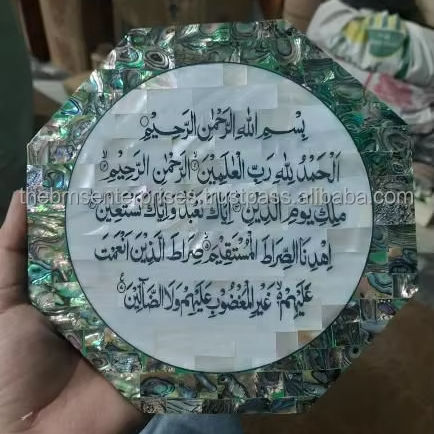 بِسْمِ اللهِ الرَّحْمٰنِ الرَّحِيْمِ
اَلْحَمْدُ لِلّٰهِ رَبِّ الْعٰلَمِيْنَ الرَّحْمٰنِ الرَّحِيْمِ
مٰلِكِ يَوْمِ الدِّيْنِ اِيَّاكَ نَعْبُدُ وَاِيَّاكَ نَسْتَعِيْنُ
thebmsenterprises.trustpass.alibaba.com
اِهْدِنَا الصِّرَاطَ الْمُسْتَقِيْمَ صِرَاطَ الَّذِيْنَ اَنْعَمْتَ
عَلَيْهِمْ غَيْرِ الْمَغْضُوْبِ عَلَيْهِمْ وَلَا الضَّآلِّيْنَ